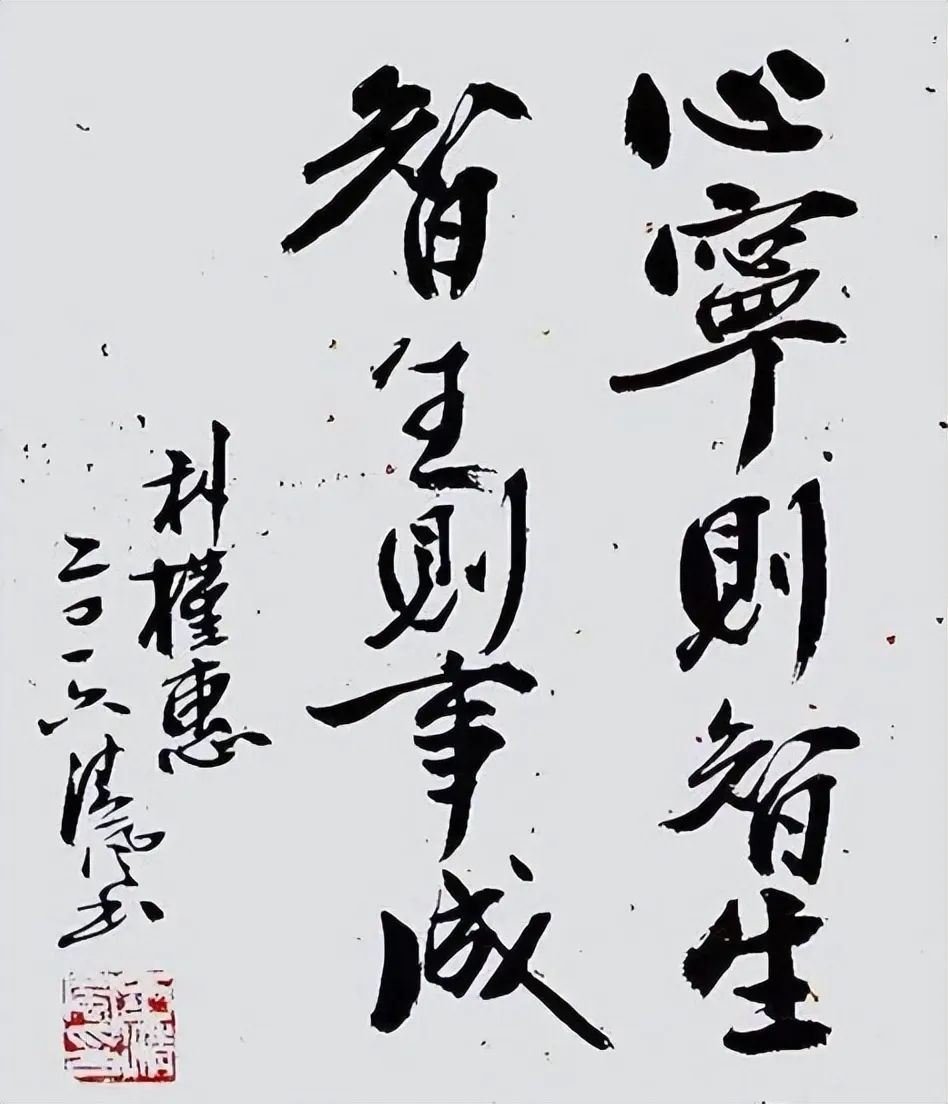 心寧則智生
智生則事成
科槿惠
二〇一六清風书